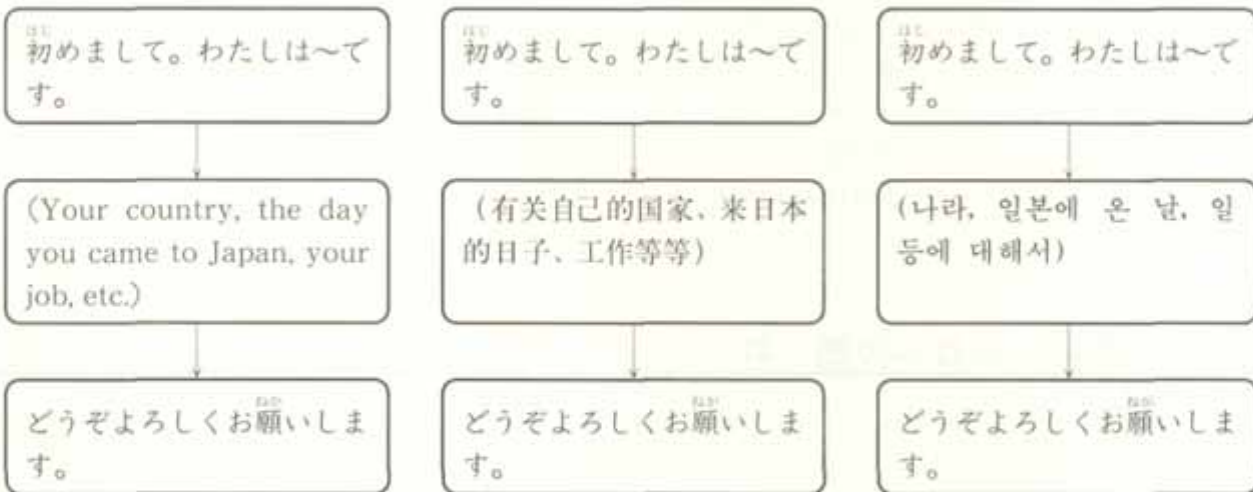 初めまして。わたしは〜で
す。
(Your country, the day
you came to Japan, your
job, etc.)
どうぞよろしくお願いしま
す。
初めまして。わたしは〜で
す。
（有关自己的国家、来日本
的日子、工作等等）
どうぞよろしくお願いしま
す。
初めまして。わたしは〜で
す。
(나라, 일본에 온 날, 일
등에 대해서)
どうぞよろしくお願いしま
す。